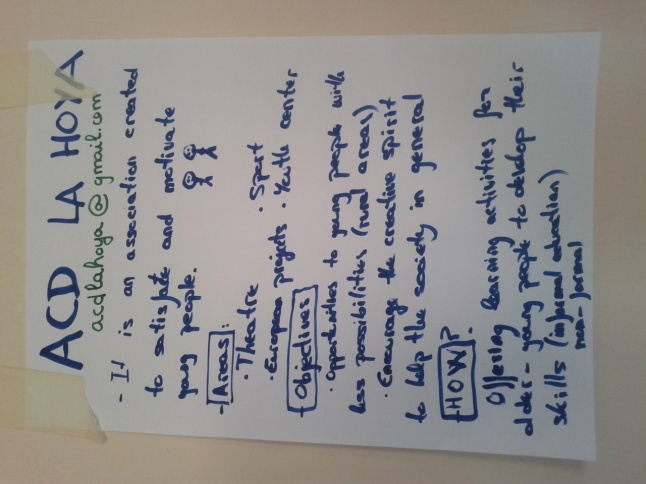 ACD LA HOYA
acdlahoya@gmail.com
- It is an association created
to satisfate and motivate
young people.
- Areas:
· Theatre · Sport
· European projects · Youth center
- Objectives
· Opportunities to young people with
less possibilities (rural areas)
· Encourage the creative spirit
to help the society in general
- HOW?
Offering learning activities for
older-young people to develop their
skills (informal education)
non-formal